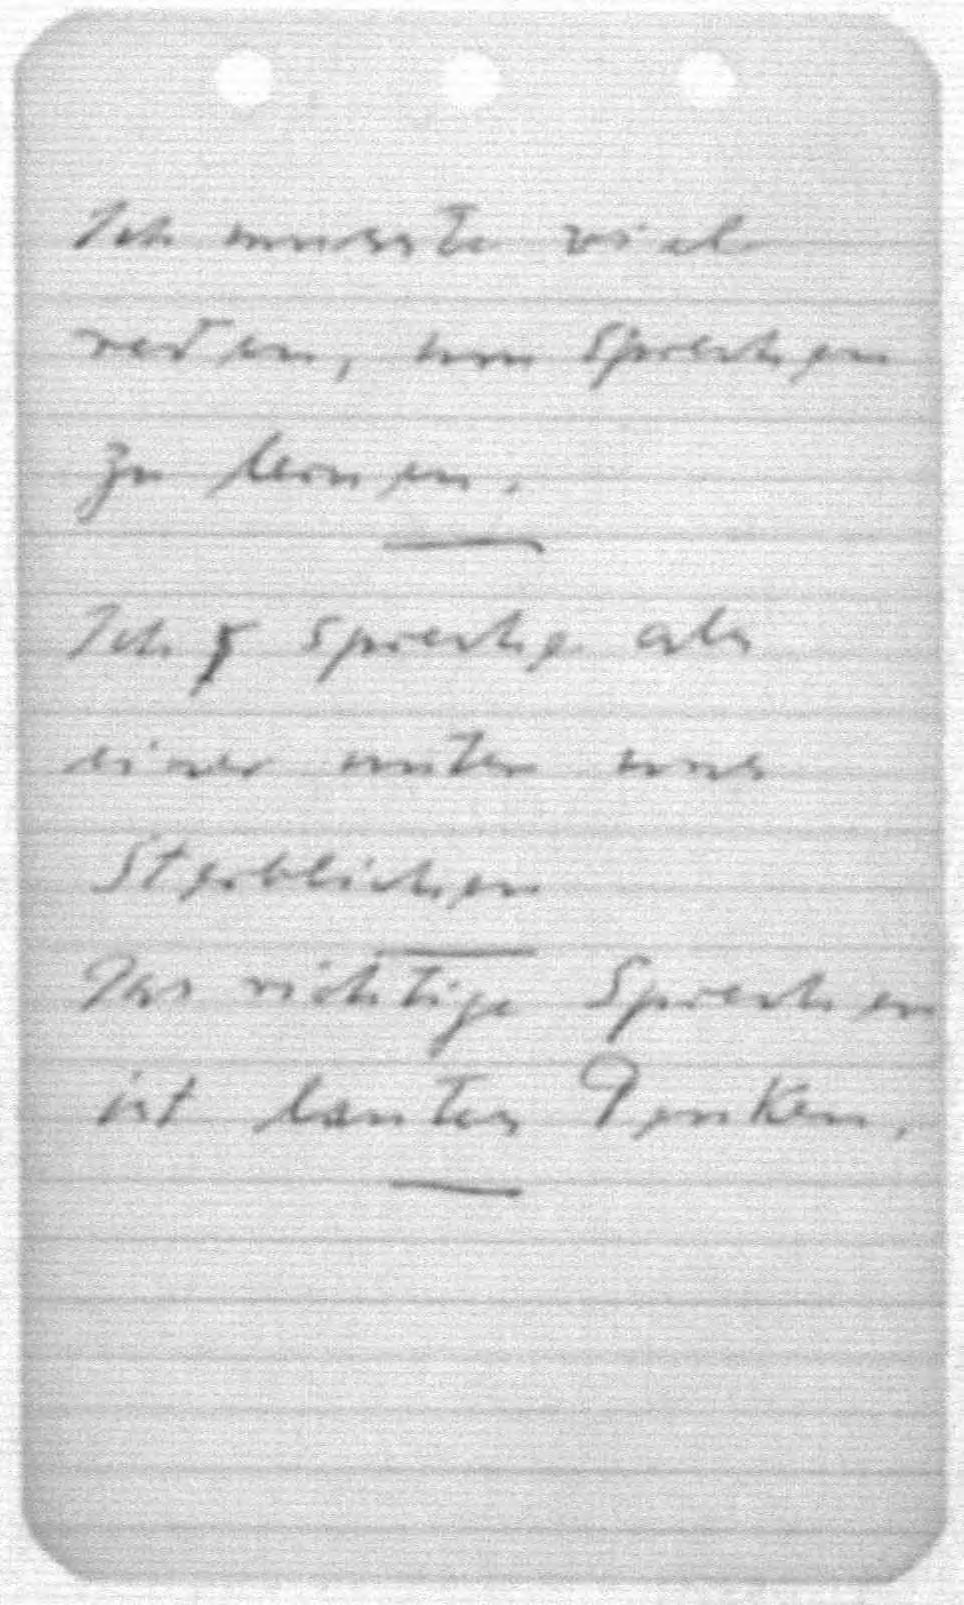 Ich musste viel
reden, um sprechen
zu lernen.
Ich spreche als
einer unter uns
Sterblichen
Das richtige Sprechen
ist lautes Denken.